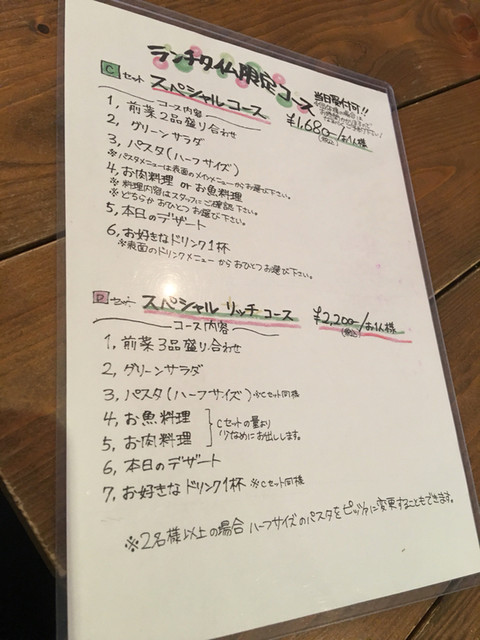 ランチタイム限定コース
当日受付可!!
C セット スペシャルコース ¥1,680-/お1人様
(税込)
コース内容
1, 前菜2品盛り合わせ
2, グリーンサラダ
3, パスタ(ハーフサイズ)
※パスタメニューは表面のメインメニューからお選び下さい。
4, お肉料理 or お魚料理
※料理内容はスタッフにご確認下さい。
※どちらかおひとつお選び下さい。
5, 本日のデザート
6, お好きなドリンク1杯
※表面のドリンクメニューからおひとつお選び下さい。
D セット スペシャル リッチコース ¥2,200-/お1人様
(税込)
コース内容
1, 前菜3品盛り合わせ
2, グリーンサラダ
3, パスタ(ハーフサイズ) ※Cセット同様
4, お魚料理
5, お肉料理
Cセットの量より
少なめにお出しします。
6, 本日のデザート
7, お好きなドリンク1杯 ※Cセット同様
※2名様以上の場合 ハーフサイズのパスタをピッツァに変更することもできます。